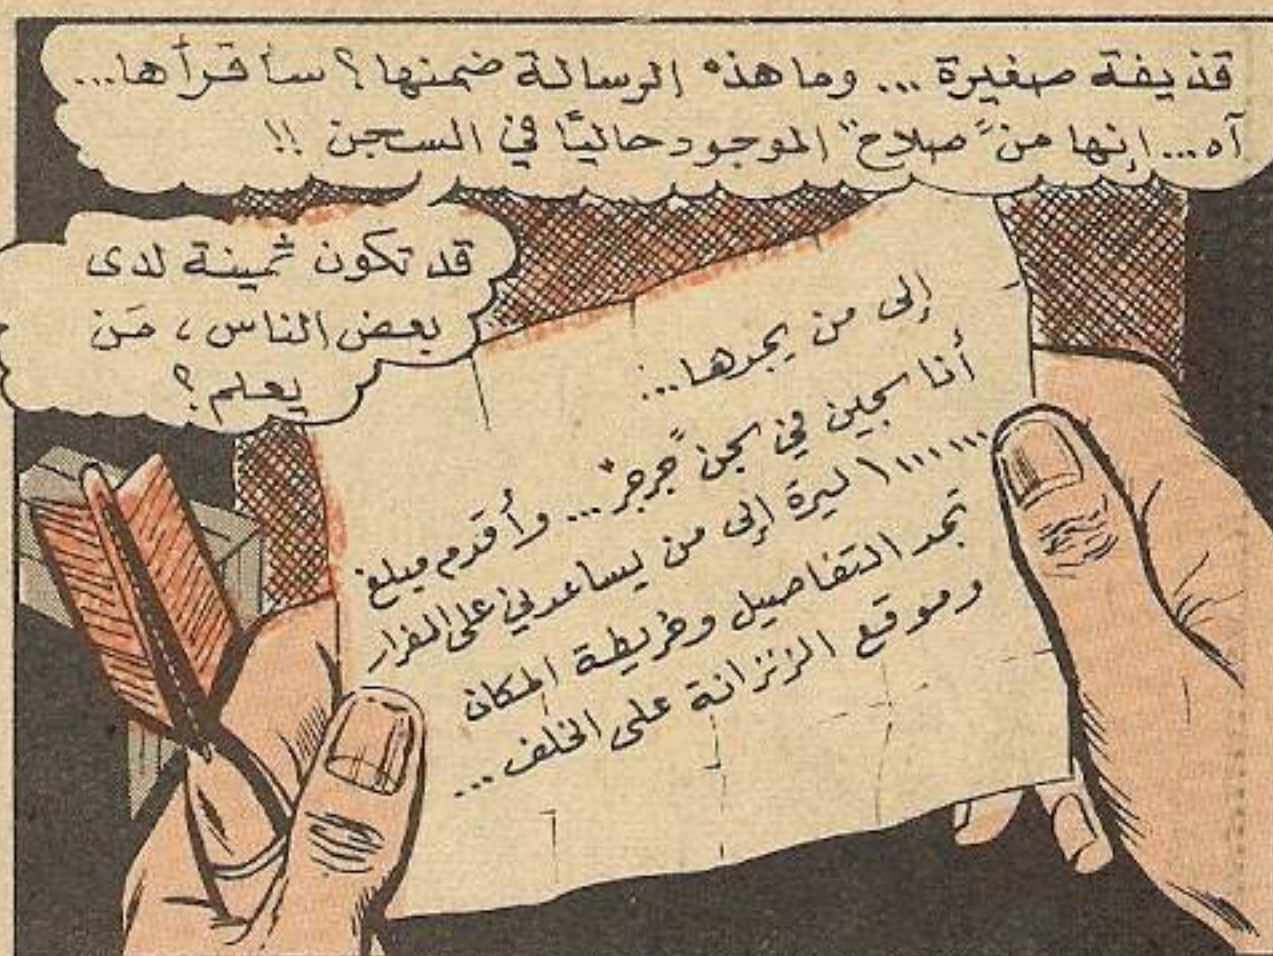 قذيفة صغيرة ... وما هذه الرسالة ضمنها؟ سأقرأها...
آه... إنها من "صلاح" الموجود حاليًا في السجن !!
قد تكون ثمينة لدى
بعض الناس ، مَن
يعلم؟
إلى من يجدها...:
أنا سجين في سجن "جرجر" ... وأقدم مبلغ
١٠٠٠٠٠٠ ليرة إلى من يساعدني على الفرار
تجد التفاصيل وخريطة المكان
وموقع الزنزانة على الخلف ...